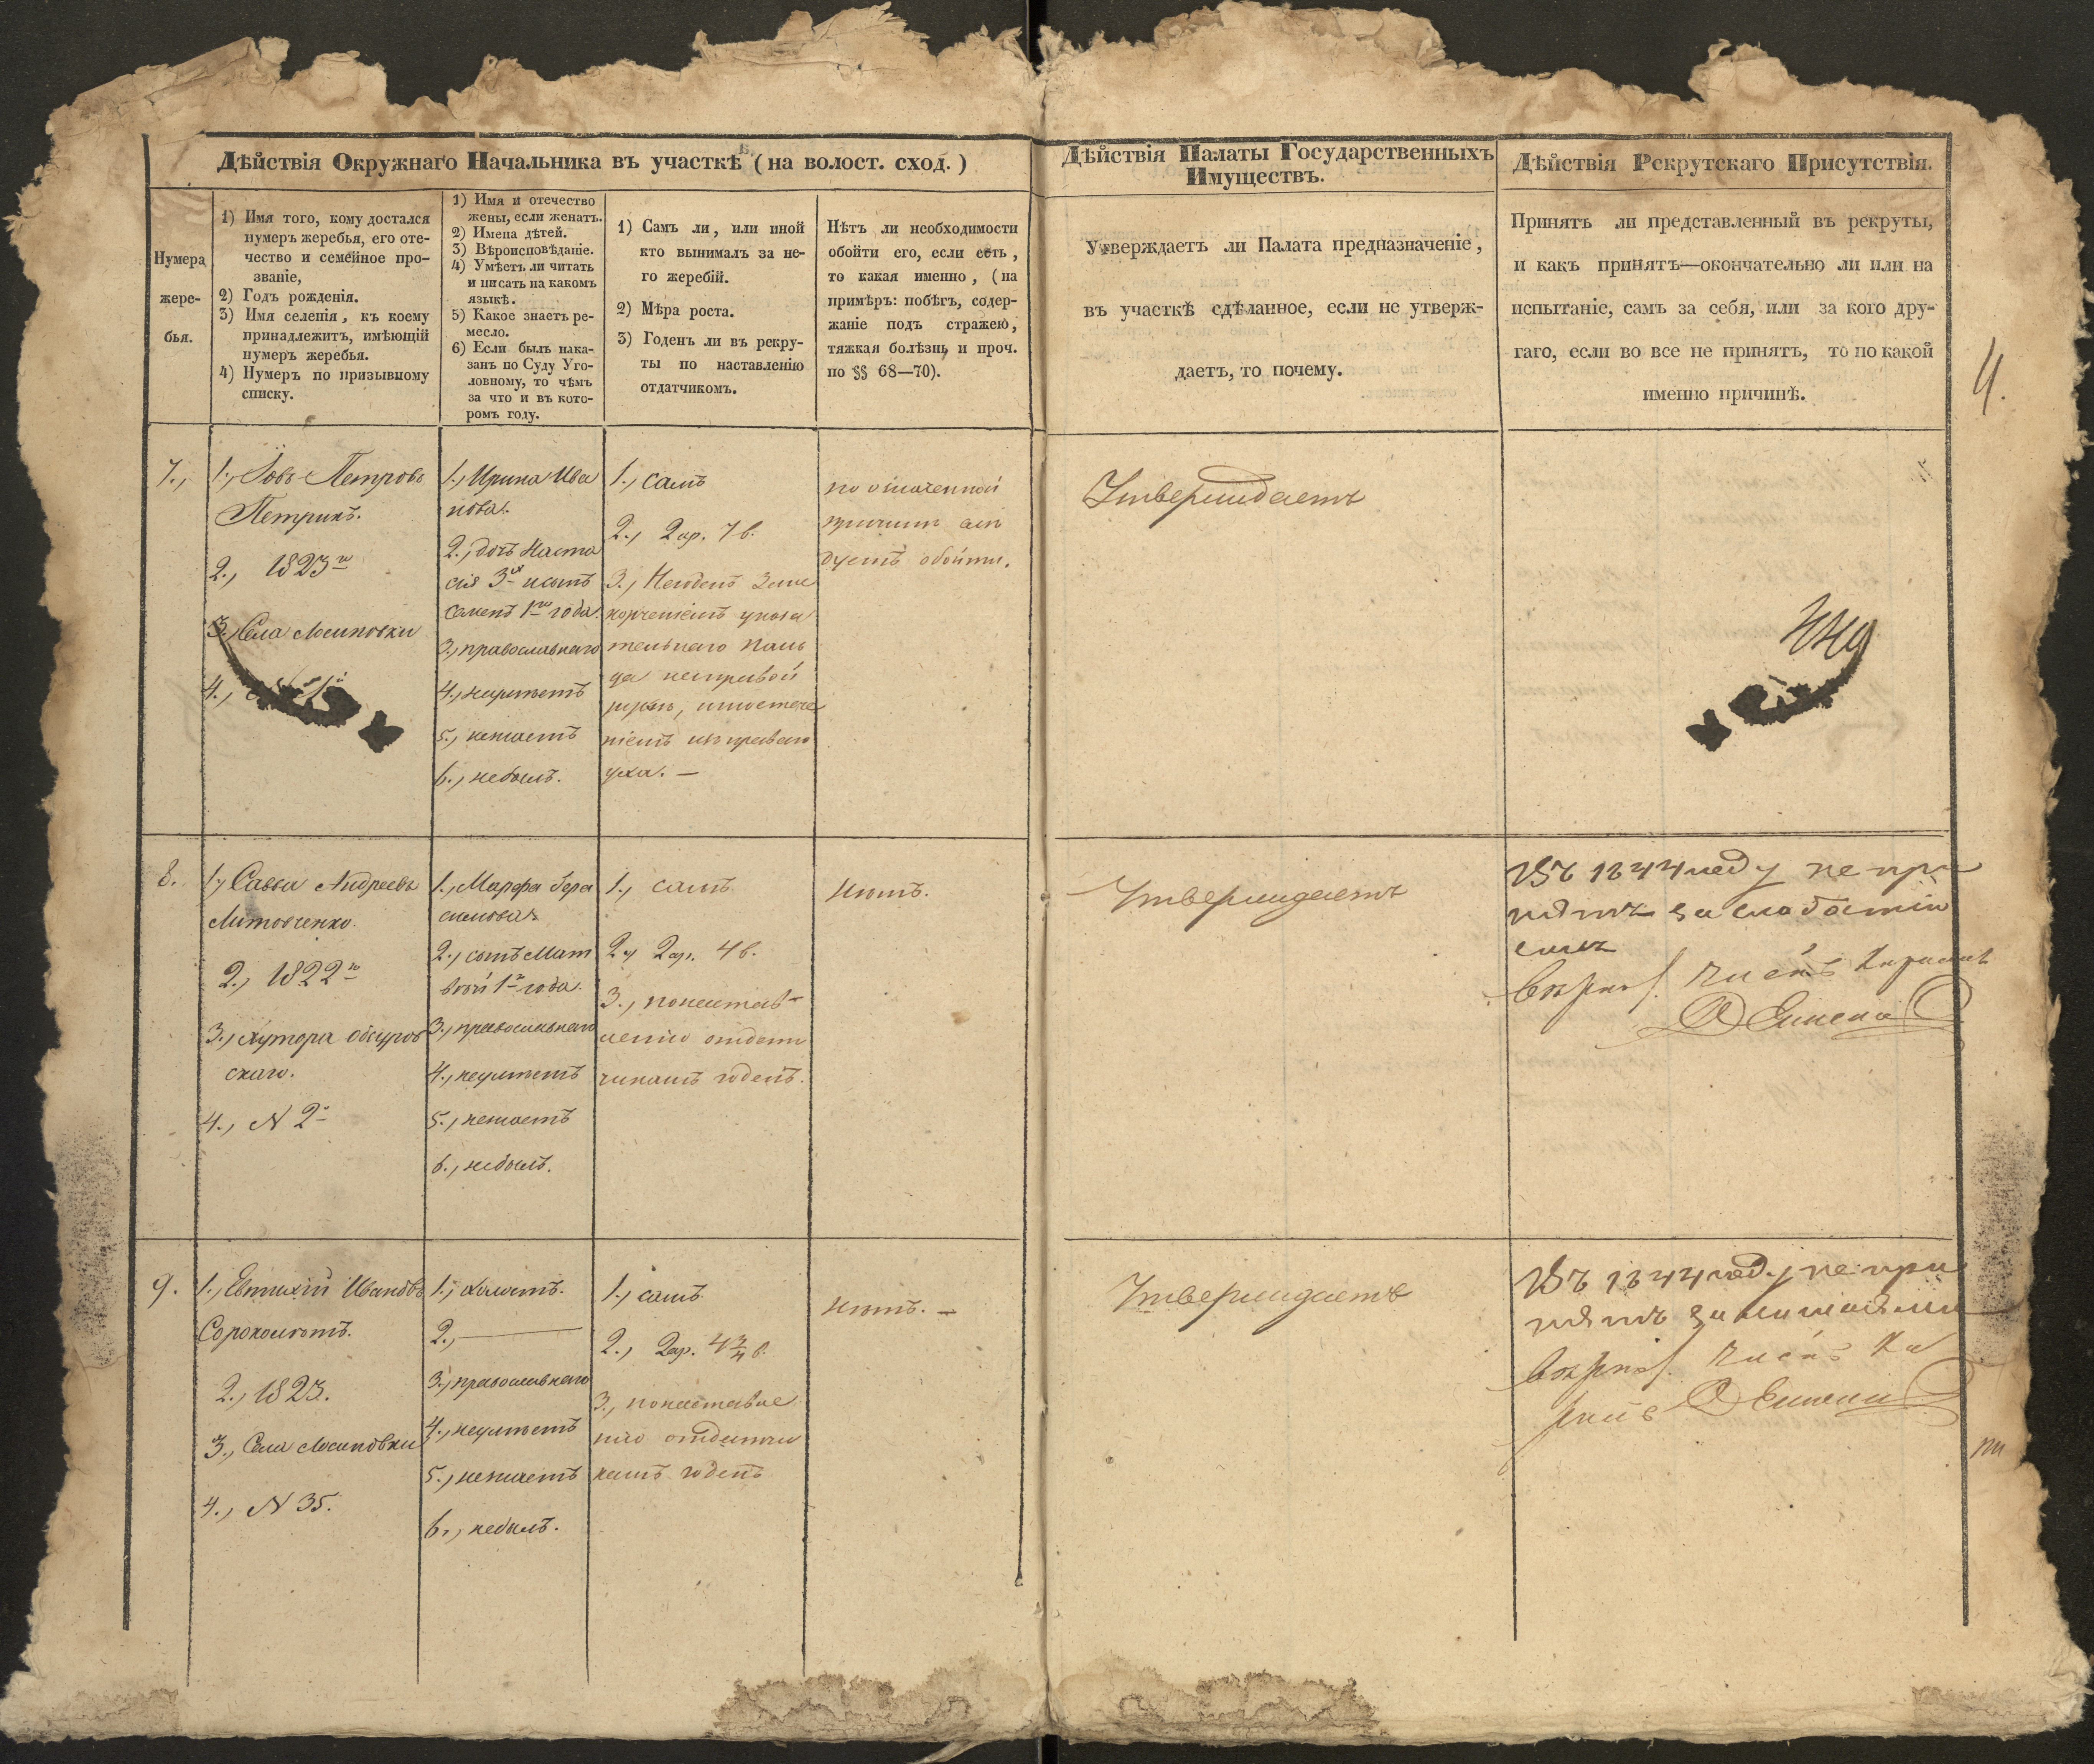 Дѣйствія Окружнаго Начальника въ участкѣ (на волост. сход.)
Нумера
жере-
бья.
1) Имя того, кому достался
нумеръ жеребья, его оте-
чество и семейное про-
званіе,
2) Годъ рожденія.
3) Имя селенія, къ коему
принадлежитъ, имѣющій
нумеръ жеребья.
4) Нумеръ по призывному
списку.
1) Имя и отечество
жены, если женатъ.
2) Имена дѣтей.
3) Вѣроисповѣданіе.
4) Умѣетъ ли читать
и писать на какомъ
языкѣ.
5) Какое знаетъ ре-
месло.
6) Если былъ нака-
занъ по Суду Уго-
ловному, то чѣмъ
за что и въ кото-
ромъ году.
1) Самъ ли, или иной
кто вынималъ за не-
го жеребій.
2) Мѣра роста.
3) Годенъ ли въ рекру-
ты по наставленію
отдатчикомъ.
Нѣтъ ли необходимости
обойти его, если есть,
то какая именно, (на
примѣръ: побѣгъ, содер-
жаніе подъ стражею,
тяжкая болѣзнь и проч.
по §§ 68—70).
Дѣйствія Палаты Государственныхъ
Имуществъ.
Утверждаетъ ли Палата предназначеніе,
въ участкѣ сдѣланное, если не утверж-
даетъ, то почему.
Дѣйствія Рекрутскаго Присутствія.
Принятъ ли представленный въ рекруты,
и какъ принятъ—окончательно ли или на
испытаніе, самъ за себя, или за кого дру-
гаго, если во все не принятъ, то по какой
именно причинѣ.
4.
7.,
1., Іовъ Петровъ
Петрикъ.
2., 1823го
3., Села Лосиновки
4.,
1., Ирина Ива
нова.
2., дочь Наста
сія 3хъ
Семенъ 1го года.
3., православнаго
4., неумѣетъ
5., незнаетъ
6., небылъ.
1., самъ
2., 2 ар. 7 в.
3., Негоденъ За не
корченіемъ указа
тельнаго паль
ца на правой
рукѣ, и истече
ніемъ изъ праваго
уха. —
по означенной
причинѣ слѣ
дуетъ обойти.
Утверждаетъ
8.
1., Савва Андреевъ
Литовченко.
2., 1822го
3., Хутора
скаго.
4., N 2й
1., Марфа Гера
симова
2., сынъ Мат
вѣй 1го года.
3., православнаго
4., неумѣетъ
5., незнаетъ
6., небылъ.
1., самъ
2., 2 ар. 4 в.
3., понастав-
ленію отдат
чикамъ годенъ.
нѣтъ.
Утверждаетъ
Въ 1844 году не при
нятъ за слабостію
силъ
9.
1., Евтихій Ивановъ
Сороколѣтъ.
2., 1823.
3., Села Лосиновки
4., N 35.
1., холостъ.
2., —
3., православнаго
4., неумѣетъ
5., незнаетъ
6., небылъ.
1., самъ
2., 2 ар. 4 3/4 в.
3., понаставле
нію отдатчи
камъ годенъ
нѣтъ. —
Утверждаетъ
Въ 1844 году не при
нятъ за